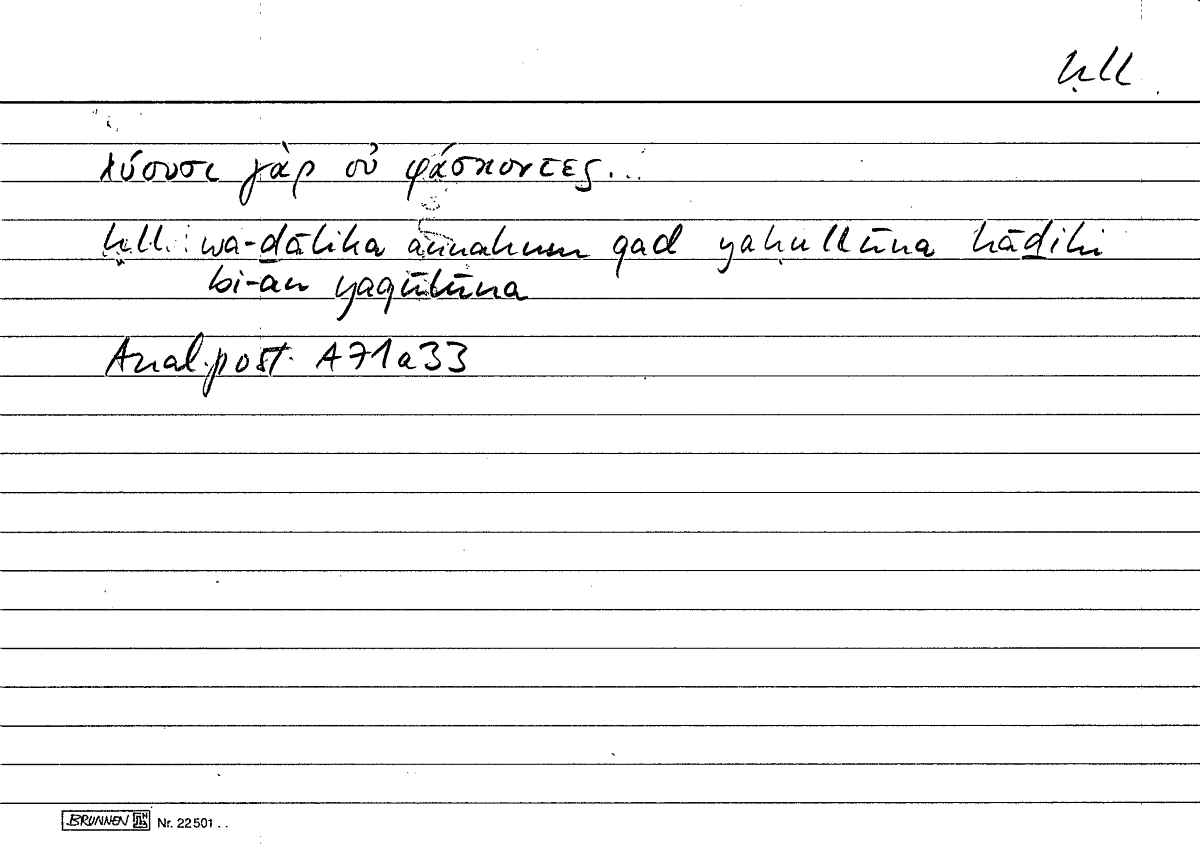 ḥll
λύουσι γὰρ οὐ φάσκοντες...
ḥll : wa-ḏālika annahum qad yaḥullūna hāḏihi
bi-an yaqūlūna
Anal. post. A71a33
BRUNNEN Nr. 22501 . .